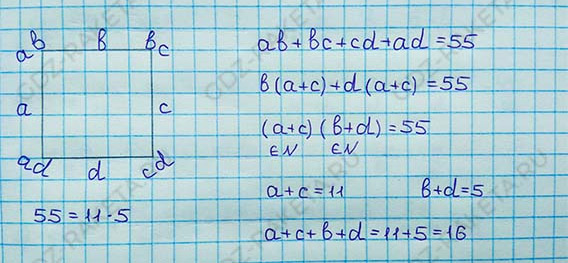 ab в bc
a c
ad d cd
55 = 11 · 5
ab + bc + cd + ad = 55
в (a+c) + d (a+c) = 55
(a+c) (в+d) = 55
∈N ∈N
a+c = 11 в+d = 5
a+c+в+d = 11+5 = 16
GDZ-RAKETA.RU